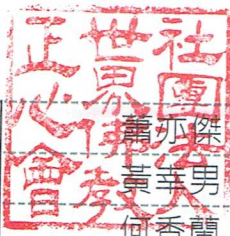 社團法人
世界佛教
正心會
蕭亦傑
黃幸男
何香蘭